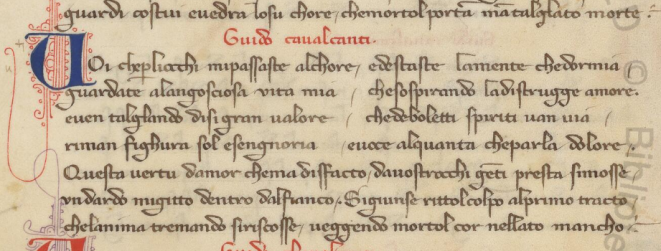 guardi costui euedra losu chore, chemortol porta ma talglato morte.
Guido caualcanti.
VOi cheperliocchi mipassaste alchore, edestaste lamente chedormia
guardate alangosciosa uita mia, chesospirando ladistrugge amore.
euen talglando disi gran ualore, chedeboletti spiriti uan uia,
riman fighura sol esengnoria, euoce alquanta cheparla dolore.
Questa uertu damor chema disfacto, dauostrocchi gēti presta simosse
undardo migitto dentro dalfianco. Sigiunse rittol colpo alprimo tracto
chelanima tremando siriscosse, ueggendo mortol cor nellato mancho.
©
Biblio